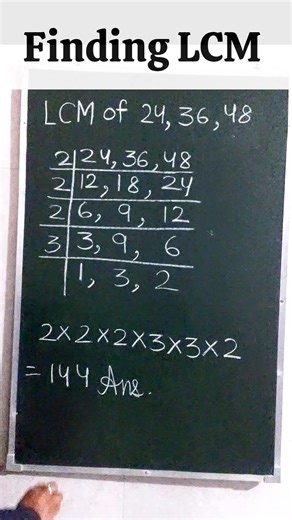 Finding LCM
LCM of 24, 36, 48
2 | 24, 36, 48
2 | 12, 18, 24
2 | 6, 9, 12
3 | 3, 9, 6
| 1, 3, 2
2×2×2×3×3×2
= 144 Ans.